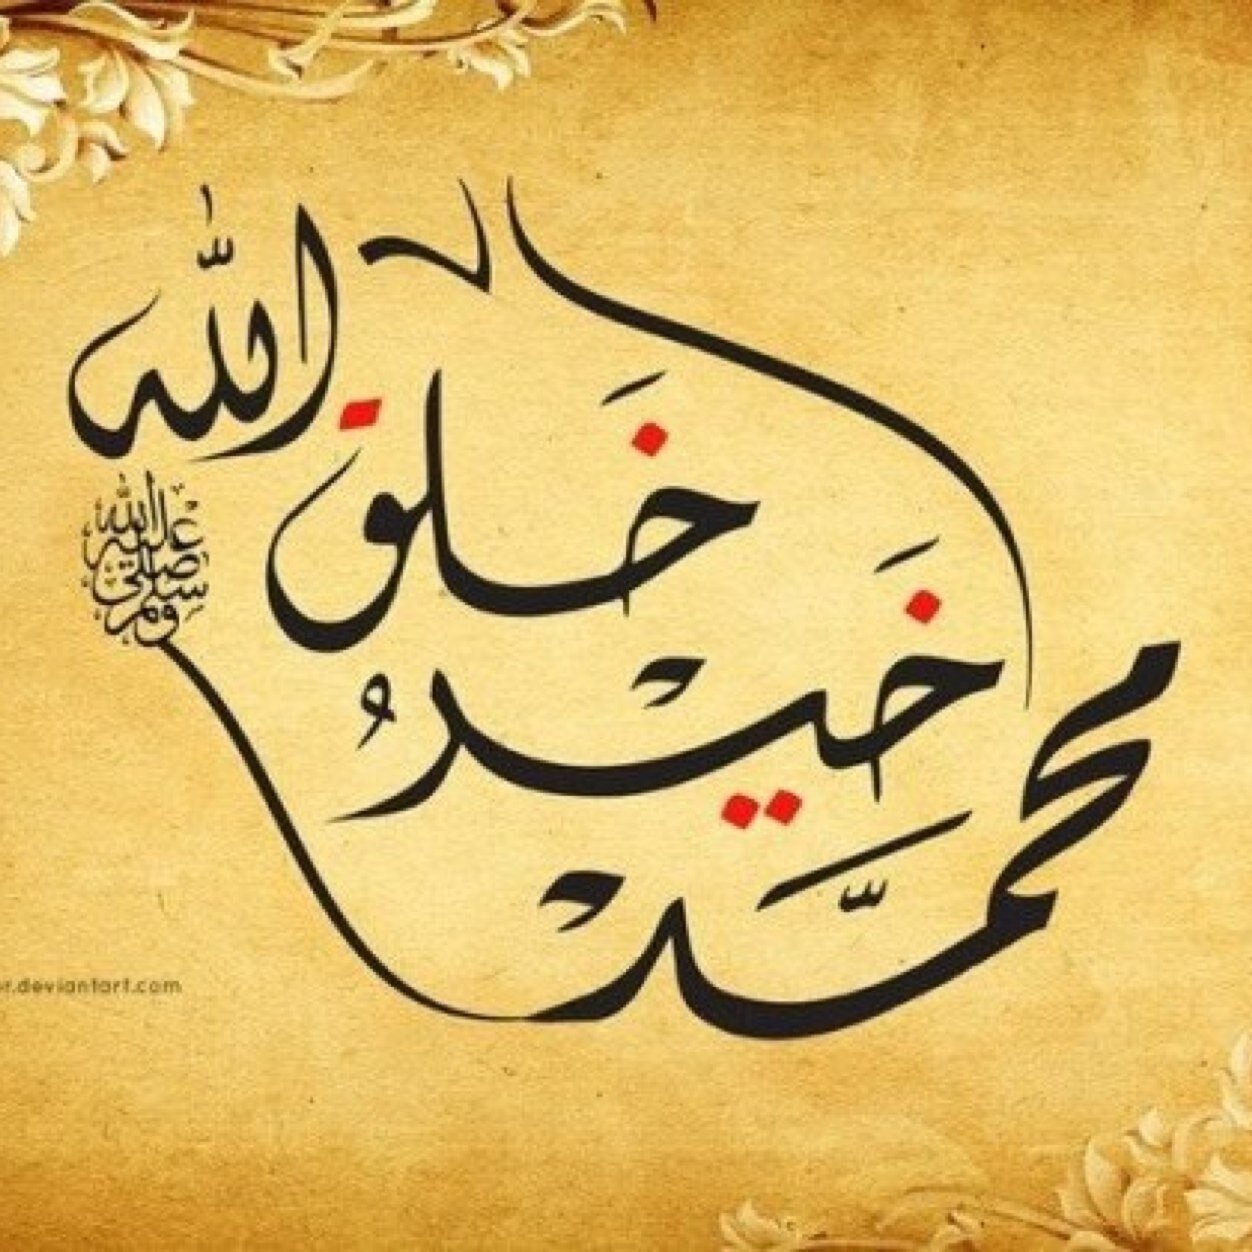 محمَّدْ
خَيْرُ
خَلق
الله
صلى الله عليه وسلم
r.deviantart.com